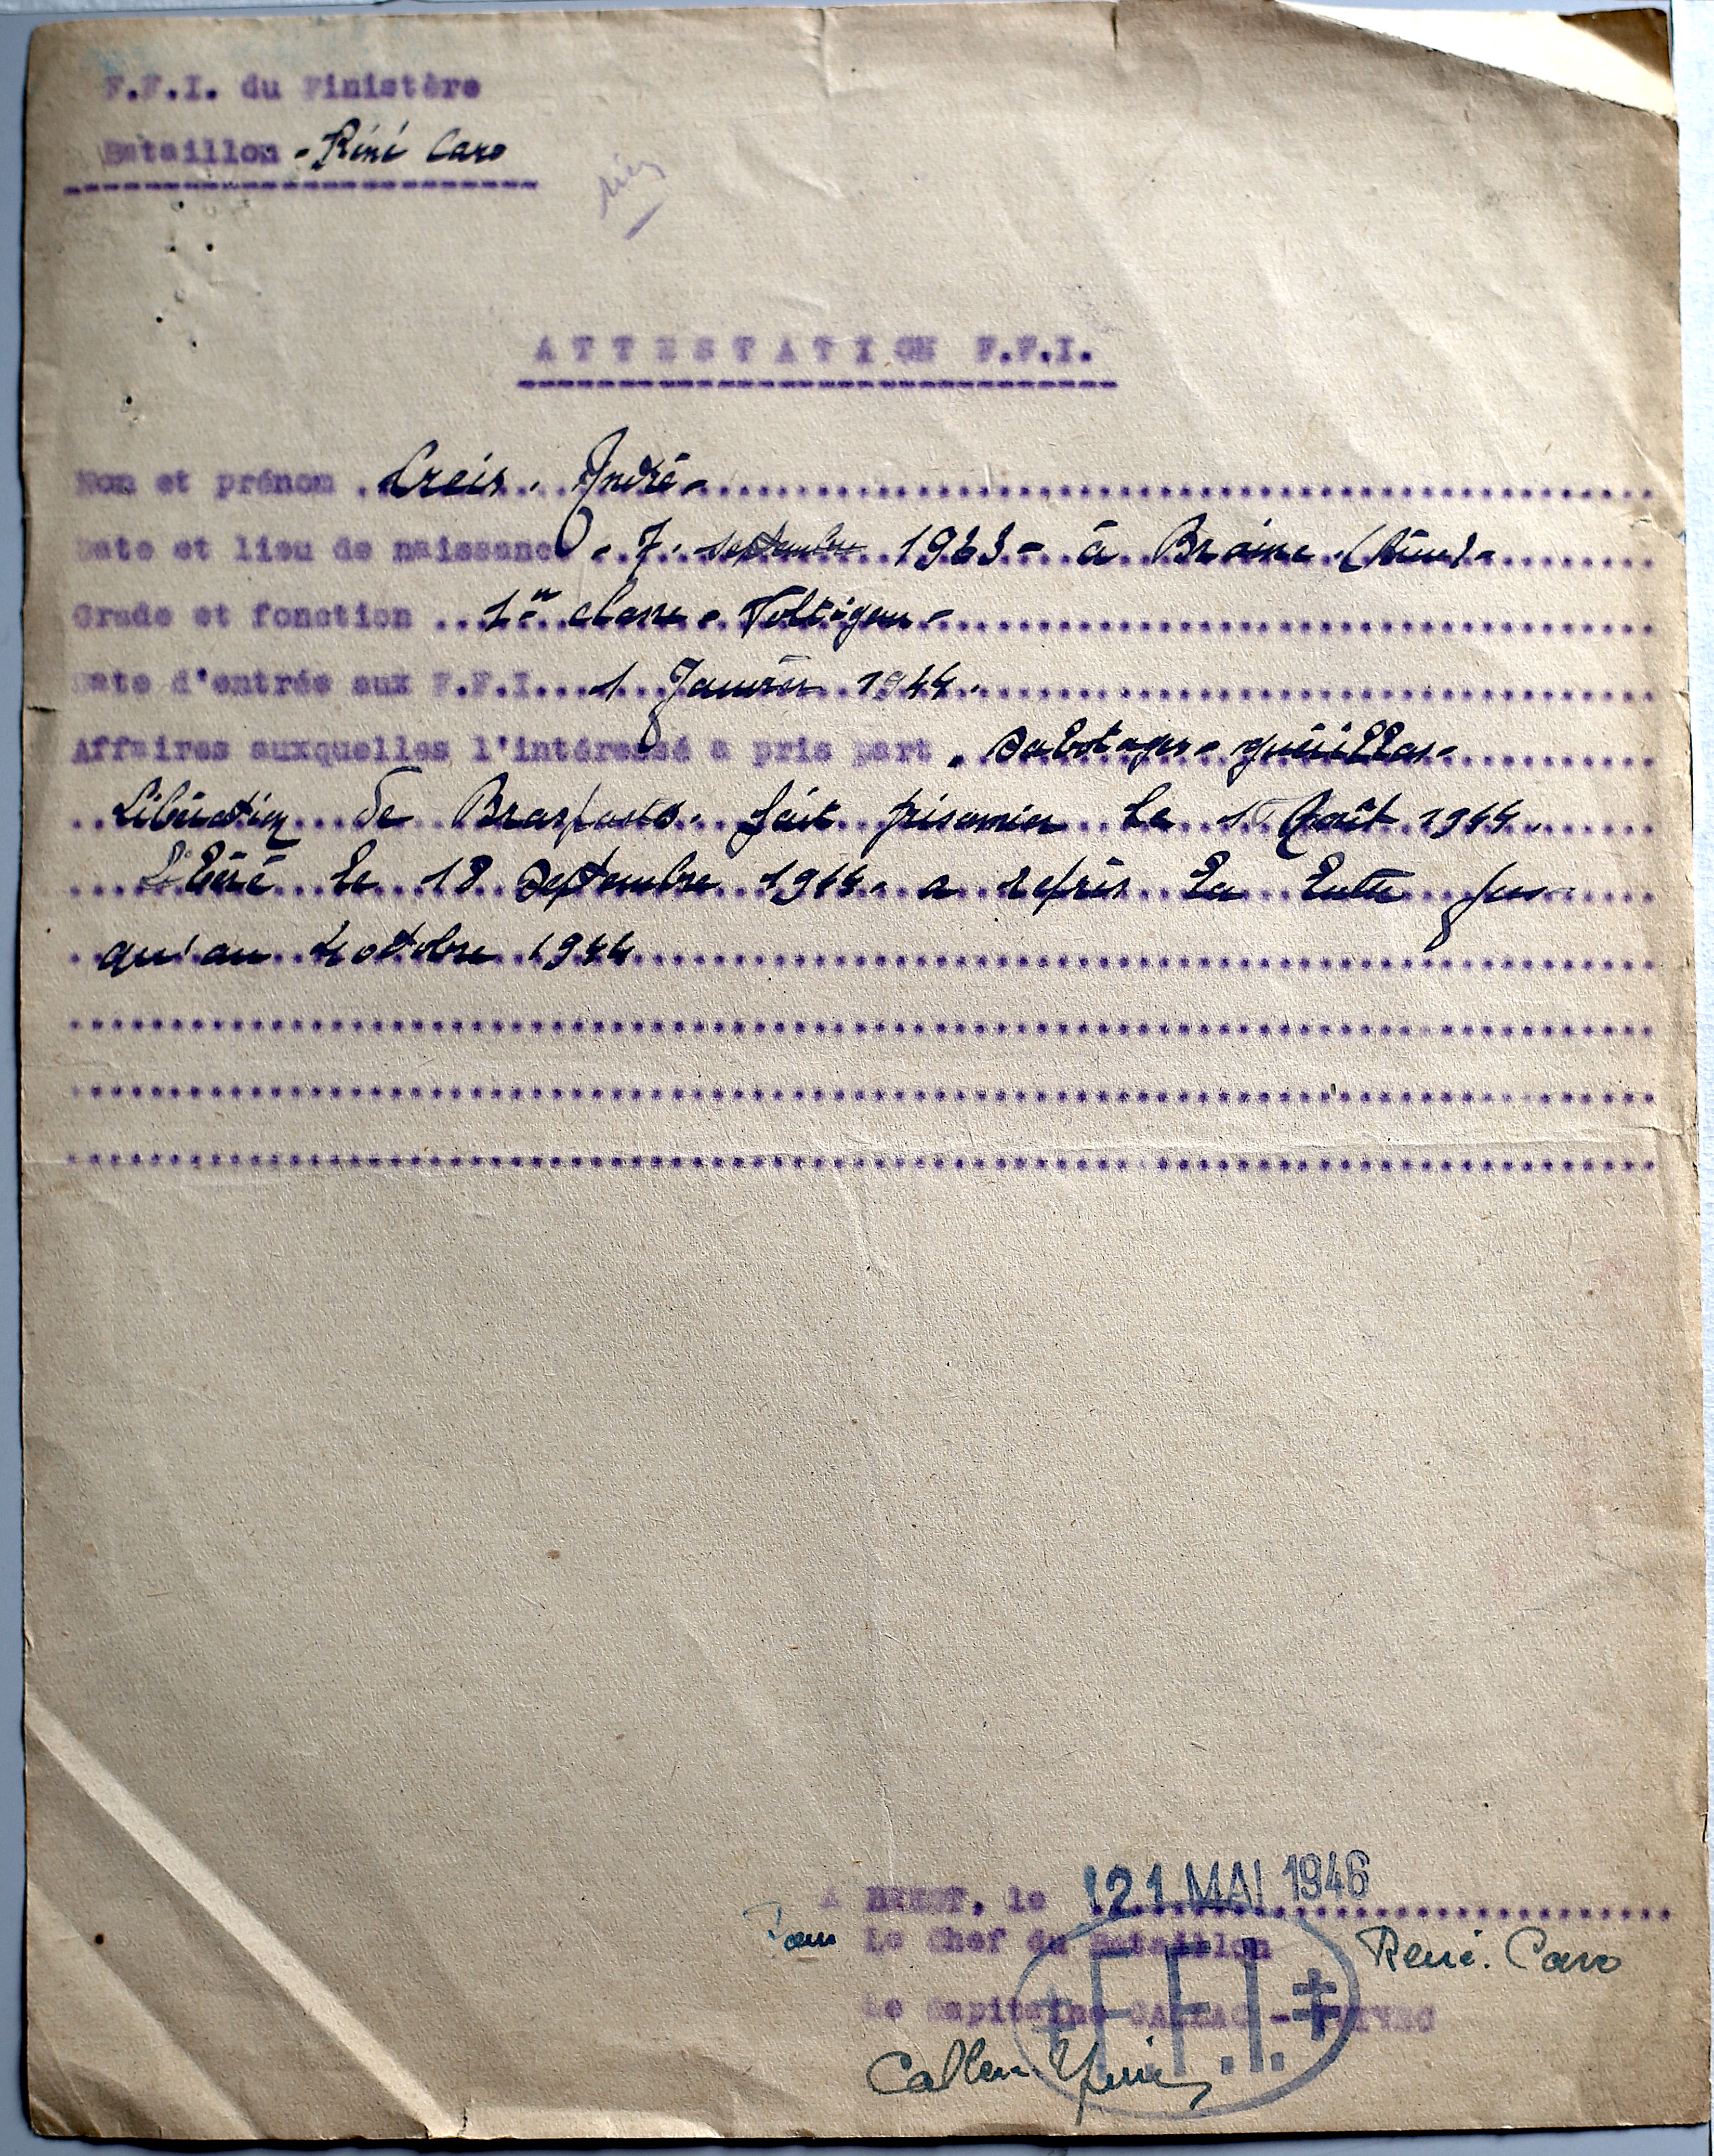 F.F.I. du Finistère
Bataillon - René Caro
ATTESTATION F.F.I.
Nom et prénom Creis. André -
Date et lieu de naissance - 7 septembre 1923 - à Braine (Aisne) -
Grade et fonction 1ère classe - Voltigeur -
Date d'entrée aux F.F.I. 1 Janvier 1944.
Affaires auxquelles l'intéressé a pris part . Sabotages - guérillas -
Libération de Brasparts. fait prisonnier le 1 Août 1944.
Libéré le 18 Septembre 1944. a repris la lutte jus-
qu'au 4 octobre 1944
A BREST, le 21 MAI 1946
Pour Le Chef du Bataillon René. Caro
Le Capitaine
F.F.I.